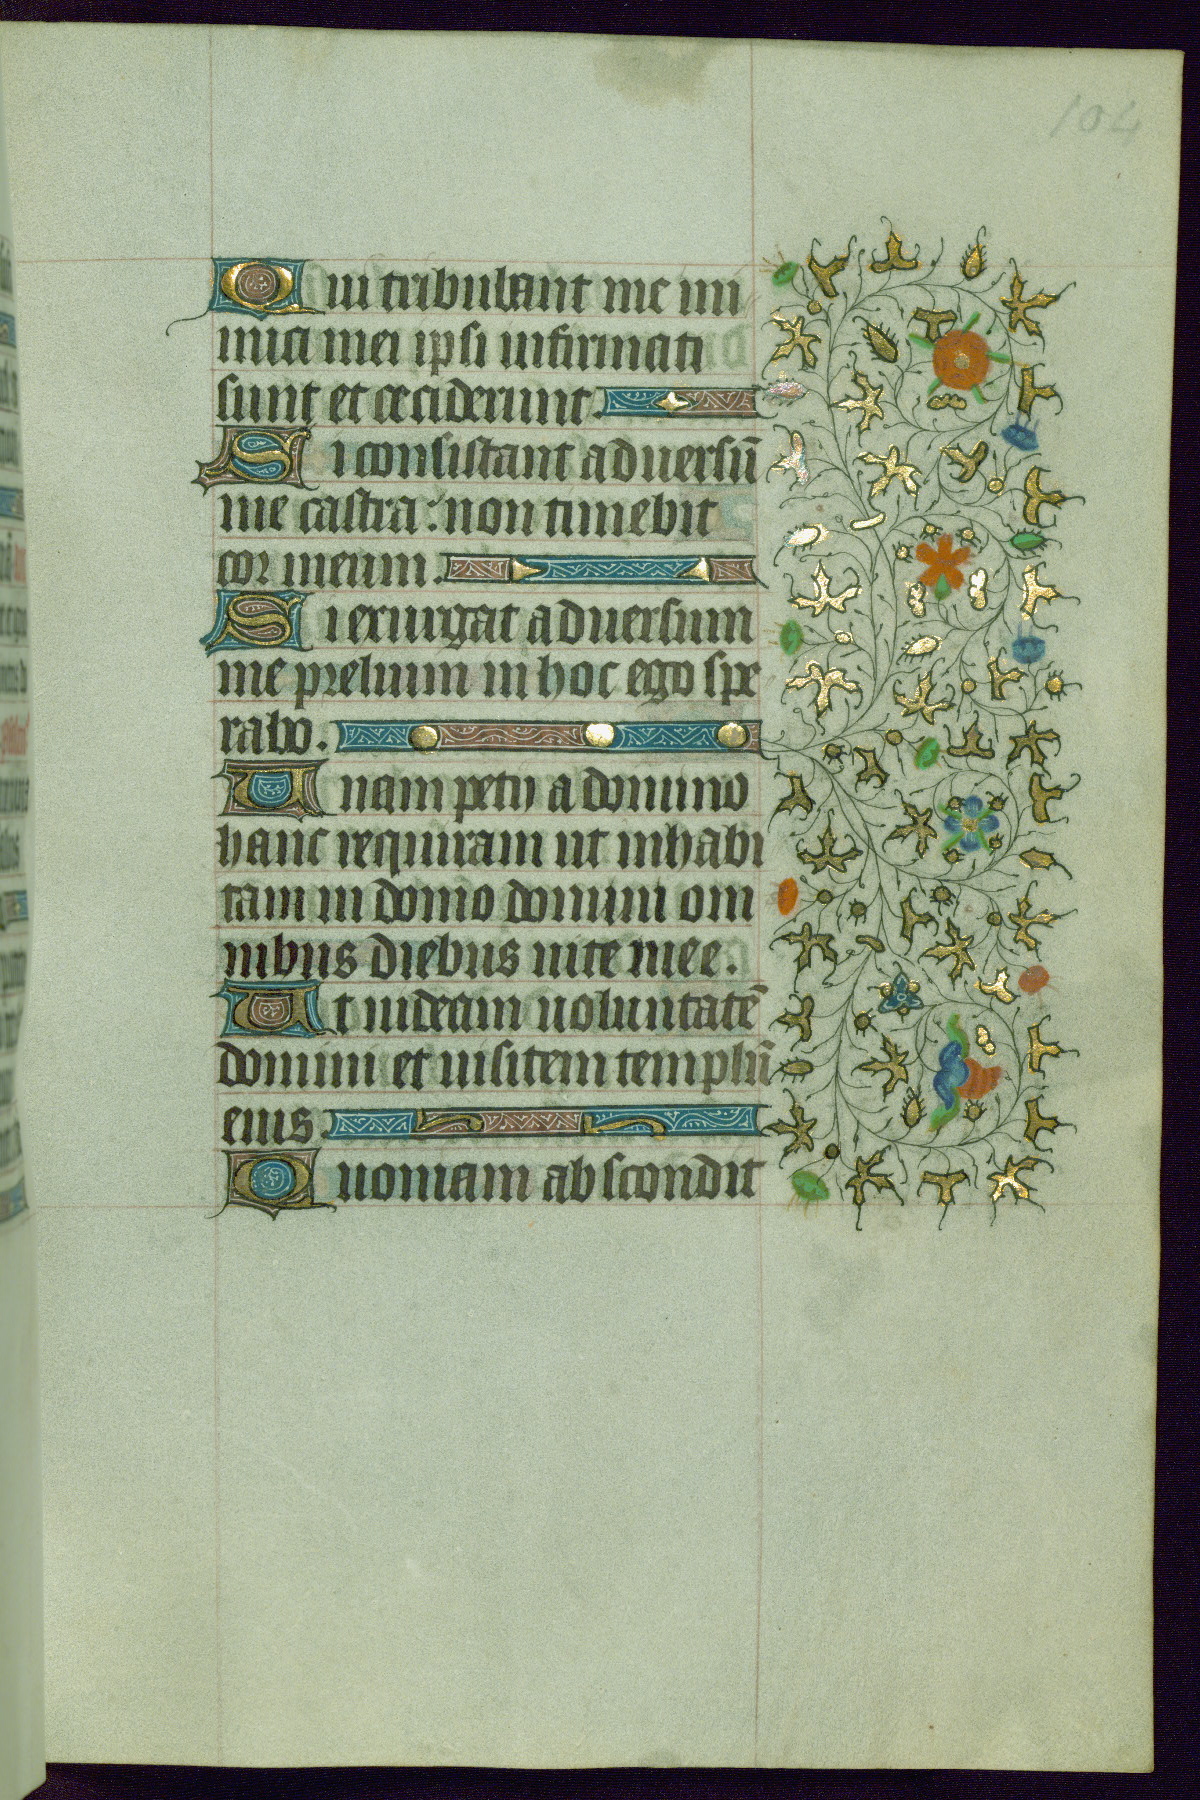 104
Qui tribulant me ini
mici mei ipsi infirmati
sunt et ceciderunt.
Si consistant adversū
me castra: non timebit
cor meum.
Si exurgat adversum
me prelium in hoc ego spe
rabo.
Unam petii a domino
hanc requiram ut inhabi
tam in domo domini om
nibus diebus vite mee.
Ut videam voluntatē
domini et visitem templū
eius.
Quoniam abscondit